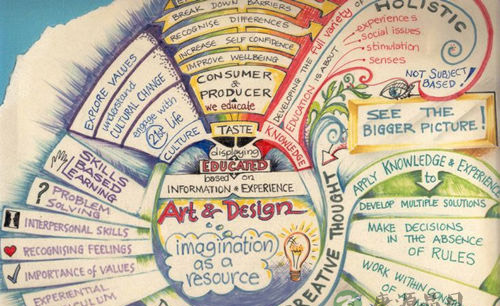 BREAK DOWN BARRIERS
RECOGNISE DIFFERENCES
INCREASE SELF CONFIDENCE
IMPROVE WELLBEING
CONSUMER
&
PRODUCER
we educate
TASTE
displaying
EDUCATED
based on
INFORMATION & EXPERIENCE
Art & Design
imagination
as a
resource
EXPLORE VALUES
understand
CULTURAL CHANGE
engage with
21st Life
CULTURE
SKILLS
BASED
LEARNING
? PROBLEM
SOLVING
INTERPERSONAL SKILLS
RECOGNISING FEELINGS
IMPORTANCE of VALUES
EXPERIENTIAL
DEVELOPING THE full variety of
KNOWLEDGE
EDUCATION IS ABOUT
HOLISTIC
experiences
social issues
stimulation
senses
NOT SUBJECT
BASED!
SEE THE
BIGGER PICTURE!
CREATIVE THOUGHT
APPLY KNOWLEDGE & EXPERIEN
to
DEVELOP MULTIPLE SOLUTIONS
MAKE DECISIONS
IN THE ABSENCE
OF RULES
WORK WITHIN